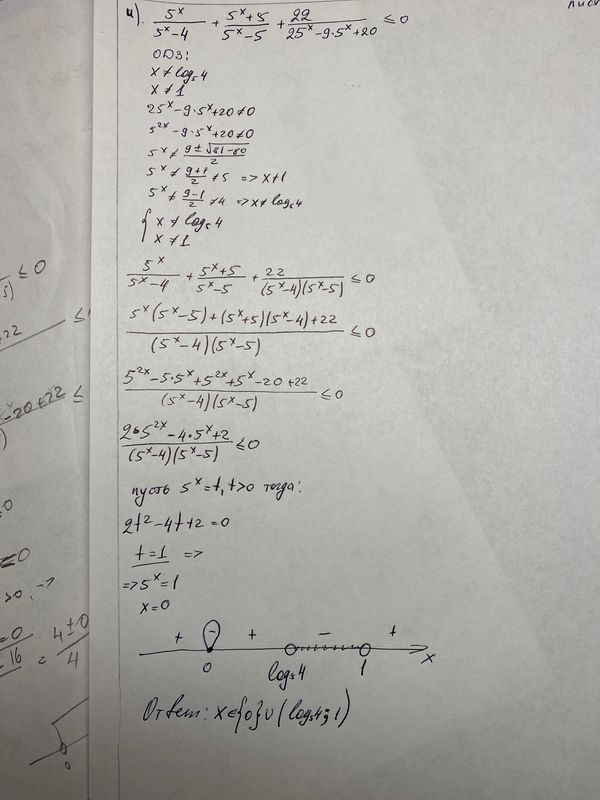 лист
4). 5^x/(5^x-4) + (5^x+5)/(5^x-5) + 22/(25^x-9·5^x+20) ≤ 0
ОДЗ:
x≠log₅4
x≠1
25^x-9·5^x+20≠0
5^2x-9·5^x+20≠0
5^x≠(9±√81-80)/2
5^x≠(9+1)/2≠5 => x≠1
5^x≠(9-1)/2≠4 => x≠log₅4
{ x≠log₅4
x≠1
5^x/(5^x-4) + (5^x+5)/(5^x-5) + 22/((5^x-4)(5^x-5)) ≤0
(5^x(5^x-5)+(5^x+5)(5^x-4)+22)/((5^x-4)(5^x-5)) ≤0
(5^2x-5·5^x+5^2x+5^x-20+22)/((5^x-4)(5^x-5)) ≤0
(2·5^2x-4·5^x+2)/((5^x-4)(5^x-5)) ≤0
пусть 5^x=t, t>0 тогда:
2t²-4t+2=0
t=1 =>
=>5^x=1
x=0
+ - + - +
0 log₅4 1 x
Ответ: x∈{0}∪(log₅4;1)
≤0
5)
+22 ≤
-20+22 ≤
≤0
>0, =>
=0
16 = 4±0/4
0